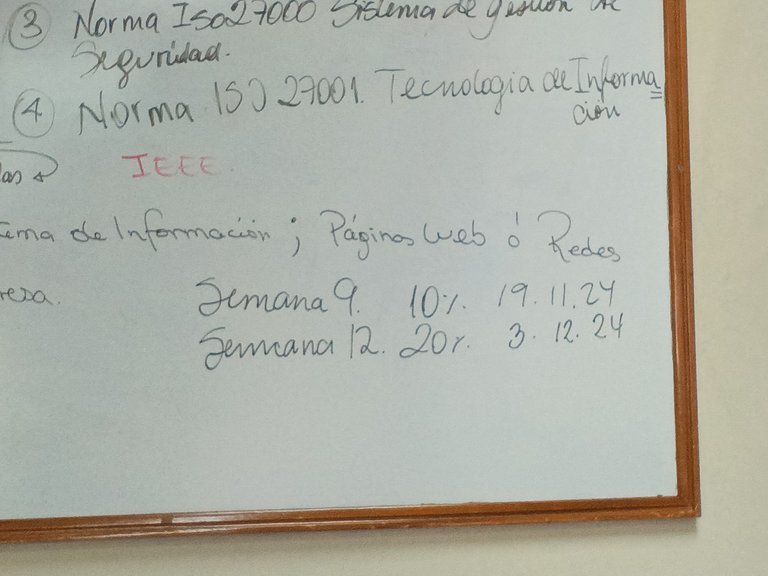 ③ Norma Iso27000 Sistema de gestión de
Seguridad.
④ Norma ISO 27001. Tecnologia de Informa
ción
IEEE
de Información ; Páginas Web ó Redes
Semana 9. 10%. 19.11.24
Semana 12. 20%. 3.12.24